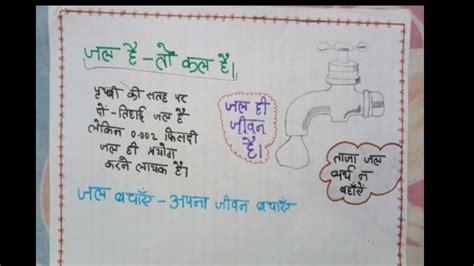 जल है - तो कल है।
पृथ्वी की सतह पर
दो - तिहाई जल है
लेकिन 0.002 फिसदी
जल ही प्रयोग
करने लायक है।
जल ही
जीवन
है।
ताजा जल
व्यर्थ न
बहाएँ
जल बचाएँ - अपना जीवन बचाएँ